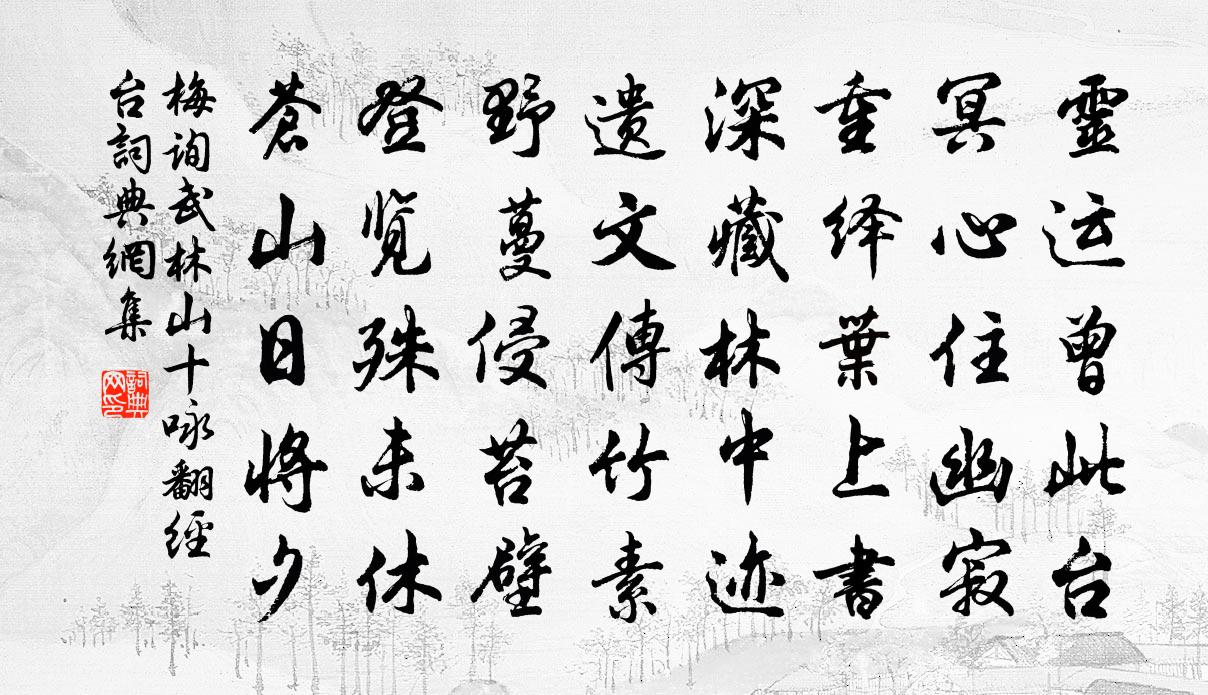 靈运曾此台
冥心住幽寂
重绎葉上書
深藏林中迹
遗文傳竹素
野蔓侵苔壁
登览殊未休
蒼山日將夕
梅询武林山十咏翻經
台詞典網集
詞典网印